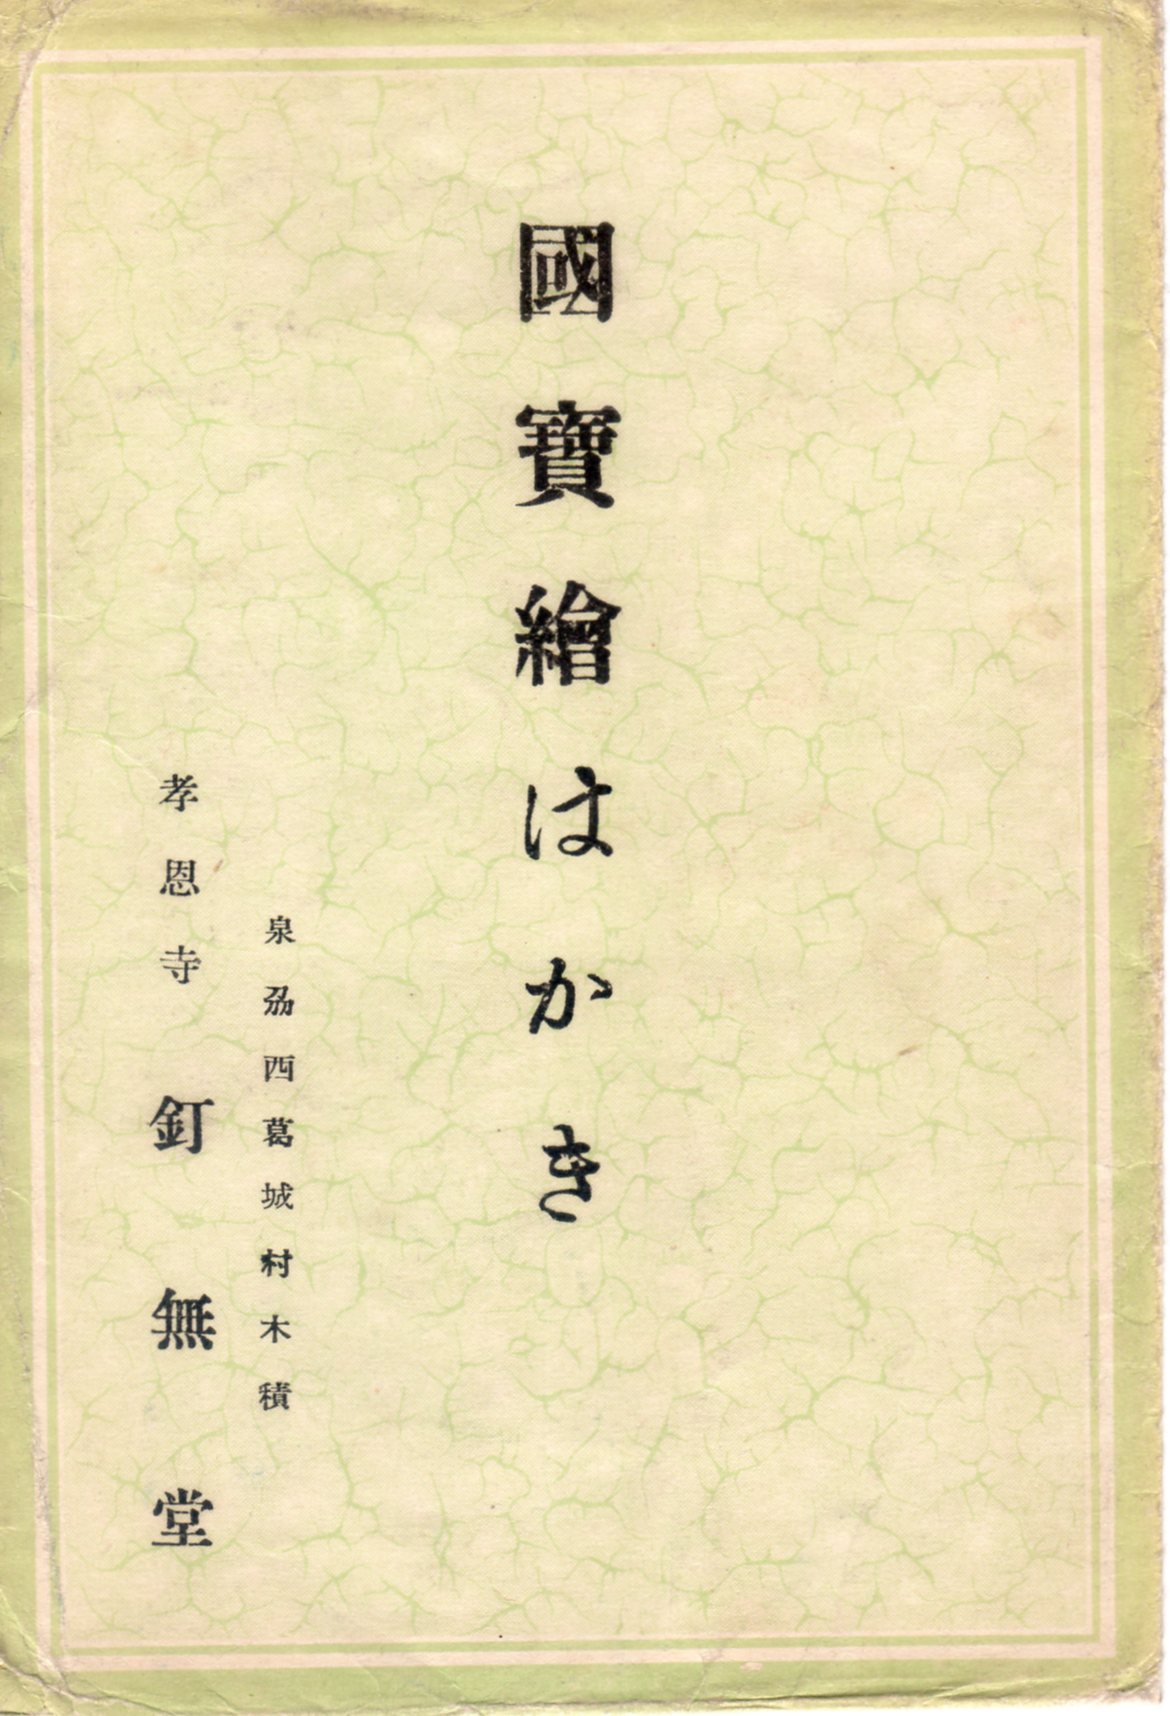 國寶繪はかき
泉刕西葛城村木積
孝恩寺 釘無堂